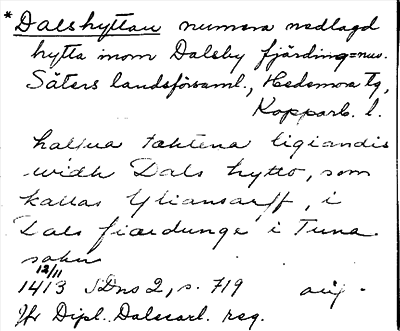 * Dalshyttan numera nedlagd
hytta inom Dalsby fjärding = nuv.
Säters landsförsaml., Hedemora tg,
Kopparb. l.
halwa tæktena ligiandis
widh Dals hytto, som
kallas Yliansarff, i
Dals fiærdunge i Tuna
sokn
12/11
1413 SDns 2, s. 719 orig.
Jfr Dipl. Dalecarl. reg.